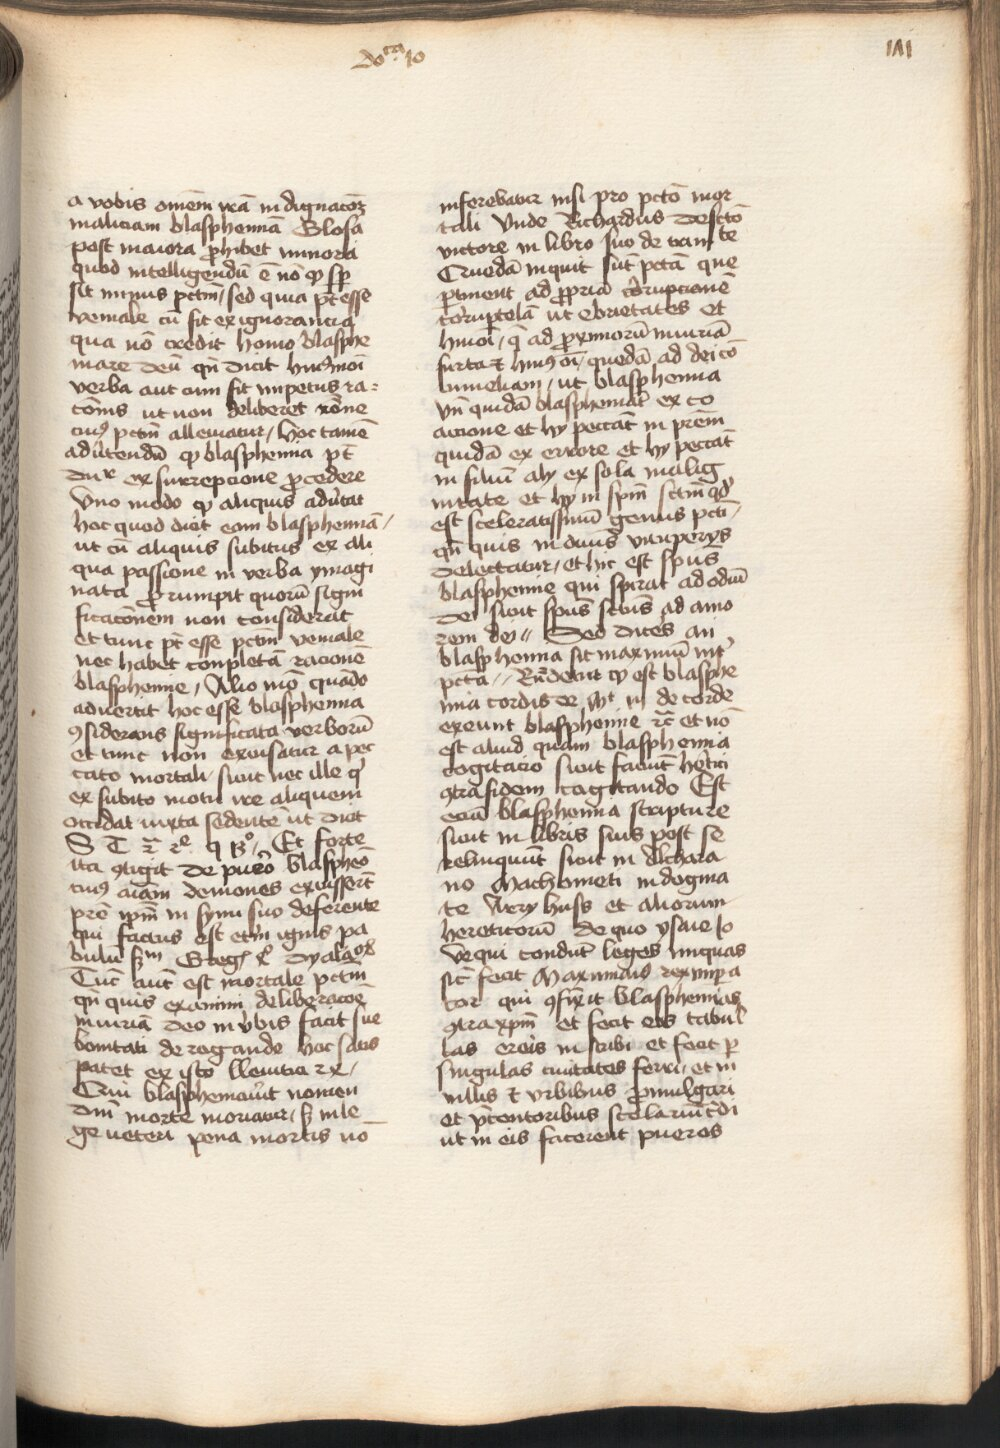 do^ca 10
141
a vobis omēm irā indignacōꝫ
maliciam blasphemiā Glosa
post maiora ꝓhibet minora
quod intelligendū ē nō ꝙ sꝑ
sit minus pctm̄ / sed quia pt̄ esse
veniale cū fit ex ignorancia
qua nō credit homo blasphe
mare deū qn̄ dicit huiꝰmōi
verba aut cum fit impetus ra-
cōnis ut non deliberet rōne
cuiꝰ pctm̄ alleuiatur / Hoc tamē
aduertendū ꝙ blasphemia pt̄
dupl̄r ex surrepcione ꝓcedere
Vno modo ꝙ aliquis adu̓tat
hoc quod dicit eam blasphemiā /
ut cū aliquis subitus ex ali
qua passione in verba ymagi
nata ꝓrumpit quorū signi
ficacōnem non considerat
et tunc pt̄ esse pctm̄ veniale
nec habet completā racionē
blasphemie / Alio mō quādo
aduertit hoc esse blasphemia
ꝯsiderans significata verborū
et tunc non excusatur a pec
cato mortali / sicut nec ille q̄
ex subito motu ire aliquem
occidat iuxta sedentē ut dicit
S T Et forte
ita ꝯtigit de puero blasphēo
cuiꝰ aīam demones excusserūt
prē ip̄m in synu suo deferente
qui factus est etn̄i ignis pa
bulū Gregꝰ dyalogoꝝ
Tūc aūt est mortale pctm̄
qn̄ quis examini deliberacōe
iniuriā deo in v̓bis facit sue
bonitati derogande hoc satis
patet ex isto llevitici
Qui blasphemau̓it nomen
dn̄i morte moriatur / sꝫ in le
ge veteri pena mortis nō
inferebatur nisi pro pctō mor
tali Unde Richardus de sctō
victore in libro suo de
Quedā inquit sūt pctā que
ꝑtinent ad ꝓpriā corrupcionē
corruptelā ut ebrietates et
hmōi / q̄ ad ꝓximorū iniuriā
furta et hui̓ꝰoī / quedā ad dei cō
tumeliam / ut blasphemia
Vn̄ quidā blasphemāt ex co
accione et hy peccāt in prēm
quidā ex errore et hy peccāt
in filiū aly ex sola malig
nitate et hy in spm̄ sctm̄ qd̓
est sceleratissimū genus pctī /
qn̄ quis in diuīs vituperys
delectatur / et hic est spūs
blasphemie qui spirat ad odiū
dei sicut spūs sctūs ad amo
rem dei // Sed dices an
blasphemia sit maximū int̓
pctā // Rn̄detur ꝙ est blasphe
mia cordis de Mt de corde
exeunt blasphemie ⁊c̄ et nō
est aliud quam blasphemia
cogitacio sicut faciūt hētici
ꝯtra fidem cogitando Est
eciā blasphemia scripture
sicut in libris suis post se
relinquūt sicut in Alchara
no Machometi in dogma
te Wery huss et aliorum
hereticorū de quo ysaie io
Ve qui condūt leges iniquas
sic̄ fecit Maximiāꝰ rex imꝑa
tor qui ꝯfixit blasphemias
ꝯtra xpm̄ et fecit eos tabul
las ereis inscribi et fecit ꝑ
singulas ciuitates ferri / et in
villis et vrbibus ꝓmulgari
et p̄centoribus scolariū t̄di
ut in eis facerent pueros